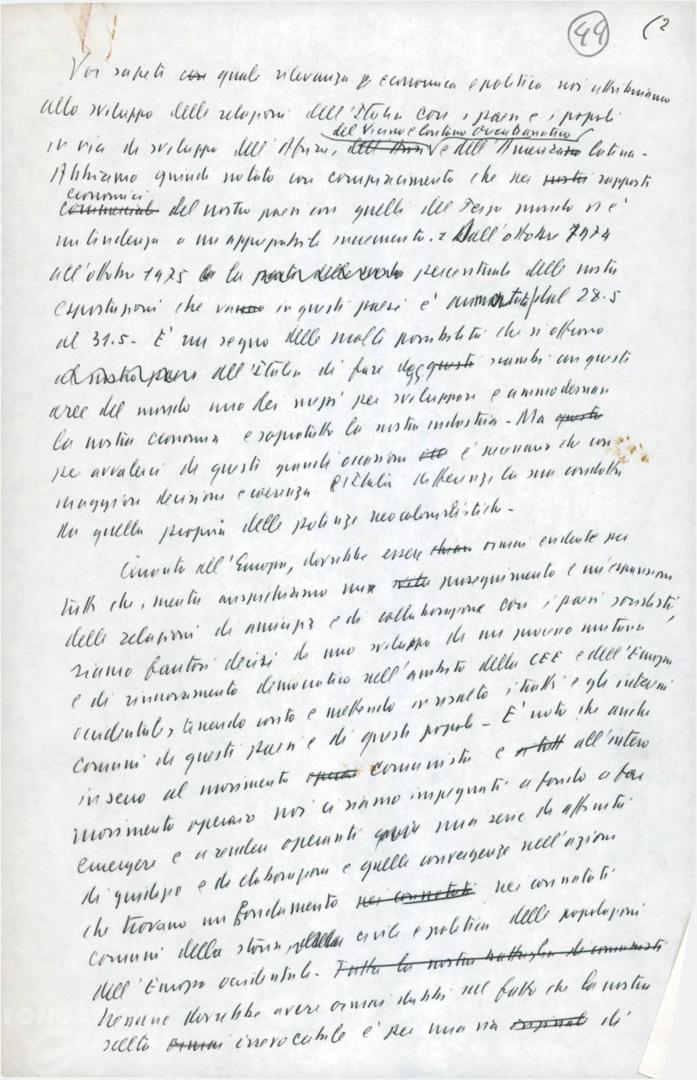 44 (2
Voi sapete con quale rilevanza economica e politica noi attribuiamo
allo sviluppo delle relazioni dell'Italia con i paesi e i popoli
del Vicino e Lontano Oriente
in via di sviluppo dell'Africa, dell'Asia e dell'America latina.
Abbiamo quindi notato con compiacimento che nei nostri rapporti
economici
commerciali del nostro paese con quelli del Terzo mondo vi è
una tendenza a un apprezzabile incremento. Dall'ottobre 1974
all'ottobre 1975 la percentuale delle nostre
esportazioni che vanno in questi paesi è aumentata dal 28.5
al 31.5. È un segno delle molte possibilità che si offrono
all'Italia di fare degli questi scambi con queste
aree del mondo uno dei mezzi per sviluppare e ammodernare
la nostra economia e soprattutto la nostra industria. Ma questo
per avvalerci di queste grandi occasioni è necessario che con
maggiore decisione e coerenza l'Italia differenzi la sua condotta
da quella propria delle potenze neocolonialistiche.
Quanto all'Europa, dovrebbe essere chiaro ormai evidente per
tutti che, mentre auspichiamo un proseguimento e un'espansione
delle relazioni di amicizia e di collaborazione con i paesi socialisti,
siamo fautori decisi di uno sviluppo di un processo unitario
e di rinnovamento democratico nell'ambito della CEE e dell'Europa
occidentale, tenendo conto e mettendo in risalto i tratti e gli interessi
comuni di questi paesi e di questi popoli. È noto che anche
in seno al movimento operaio comunista e all'intero
movimento operaio noi ci siamo impegnati a fondo a fare
emergere e a rendere operanti una serie di affinità
di giudizio e di elaborazione e quelle convergenze nell'azione
che trovano un fondamento nei connotati nei connotati
comuni della storia, della civile e politica delle popolazioni
dell'Europa occidentale. Tutta la nostra battaglia di comunisti
Nessuno dovrebbe avere ormai dubbi sul fatto che la nostra
scelta ormai irrevocabile è per una via originale di